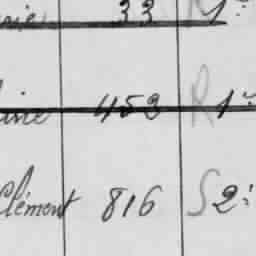 33 R 1
453 R 1
Clément 816 S 2